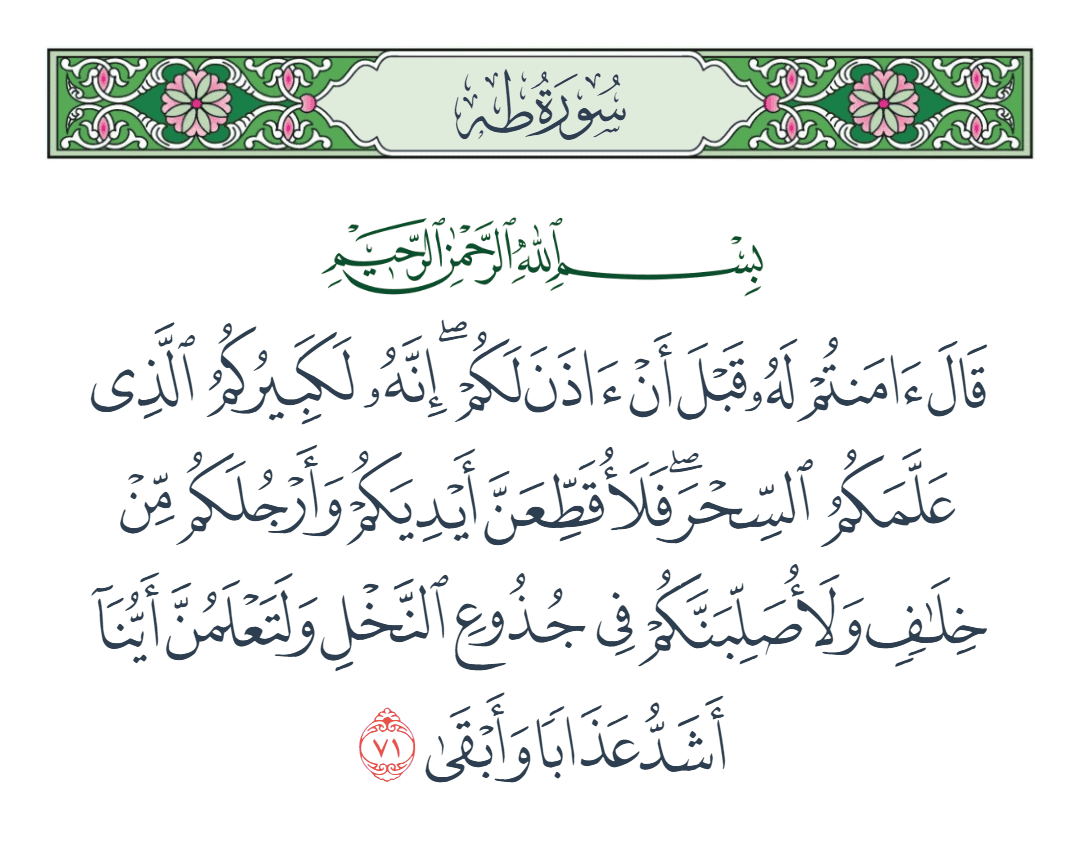 سُورَةُ طه
بِسْمِ ٱللَّهِ ٱلرَّحْمَٰنِ ٱلرَّحِيمِ
قَالَ ءَامَنتُمْ لَهُۥ قَبْلَ أَنْ ءَاذَنَ لَكُمْ ۖ إِنَّهُۥ لَكَبِيرُكُمُ ٱلَّذِى
عَلَّمَكُمُ ٱلسِّحْرَ ۖ فَلَأُقَطِّعَنَّ أَيْدِيَكُمْ وَأَرْجُلَكُم مِّنْ
خِلَٰفٍ وَلَأُصَلِّبَنَّكُمْ فِى جُذُوعِ ٱلنَّخْلِ وَلَتَعْلَمُنَّ أَيُّنَآ
أَشَدُّ عَذَابًا وَأَبْقَىٰ ٧١